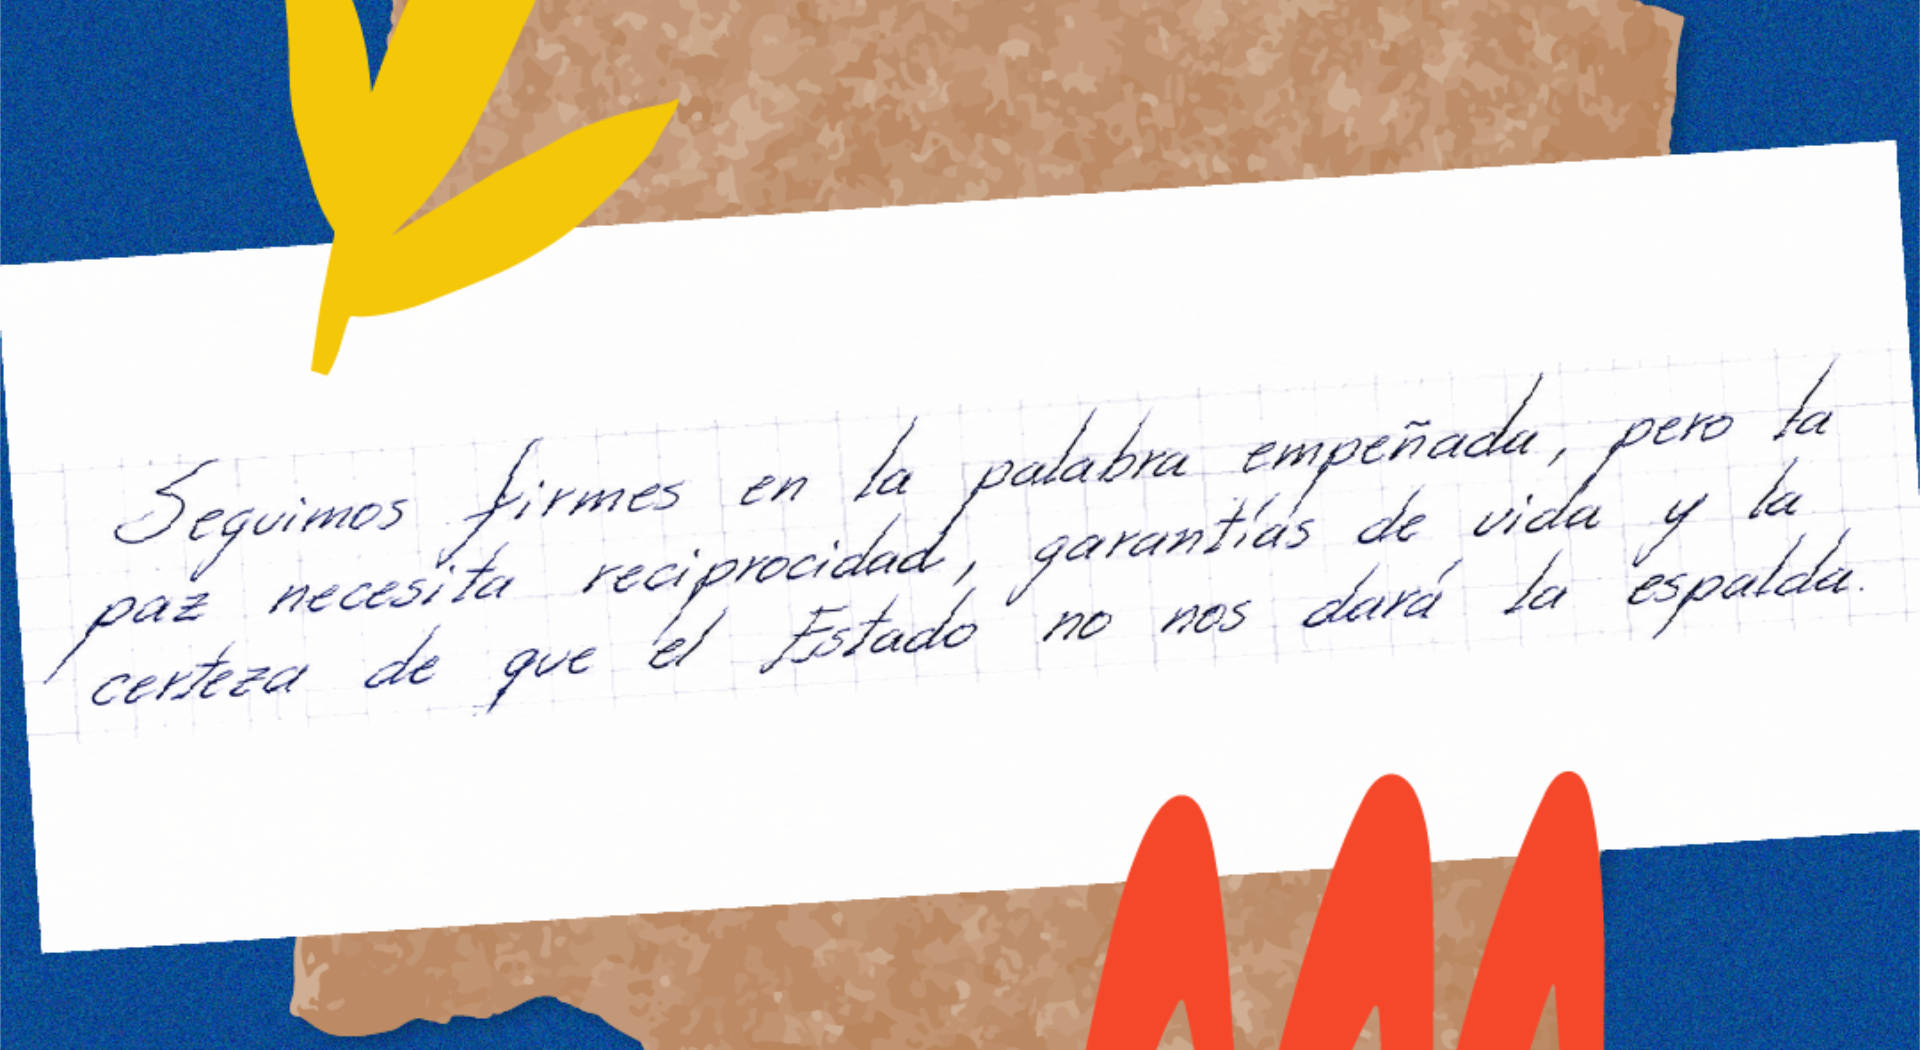 Seguimos firmes en la palabra empeñada, pero la
paz necesita reciprocidad, garantías de vida y la
certeza de que el Estado no nos dará la espalda.